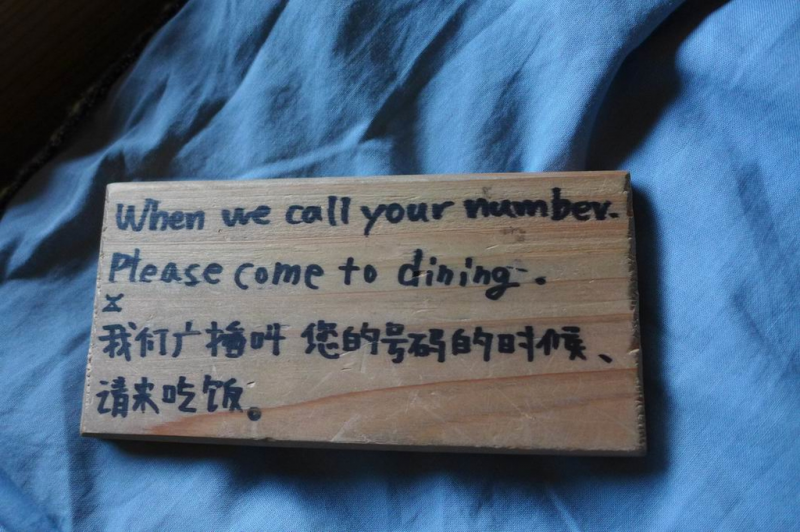 When we call your number.
Please come to dining.
我们广播叫 您的号码的时候、
请来吃饭。